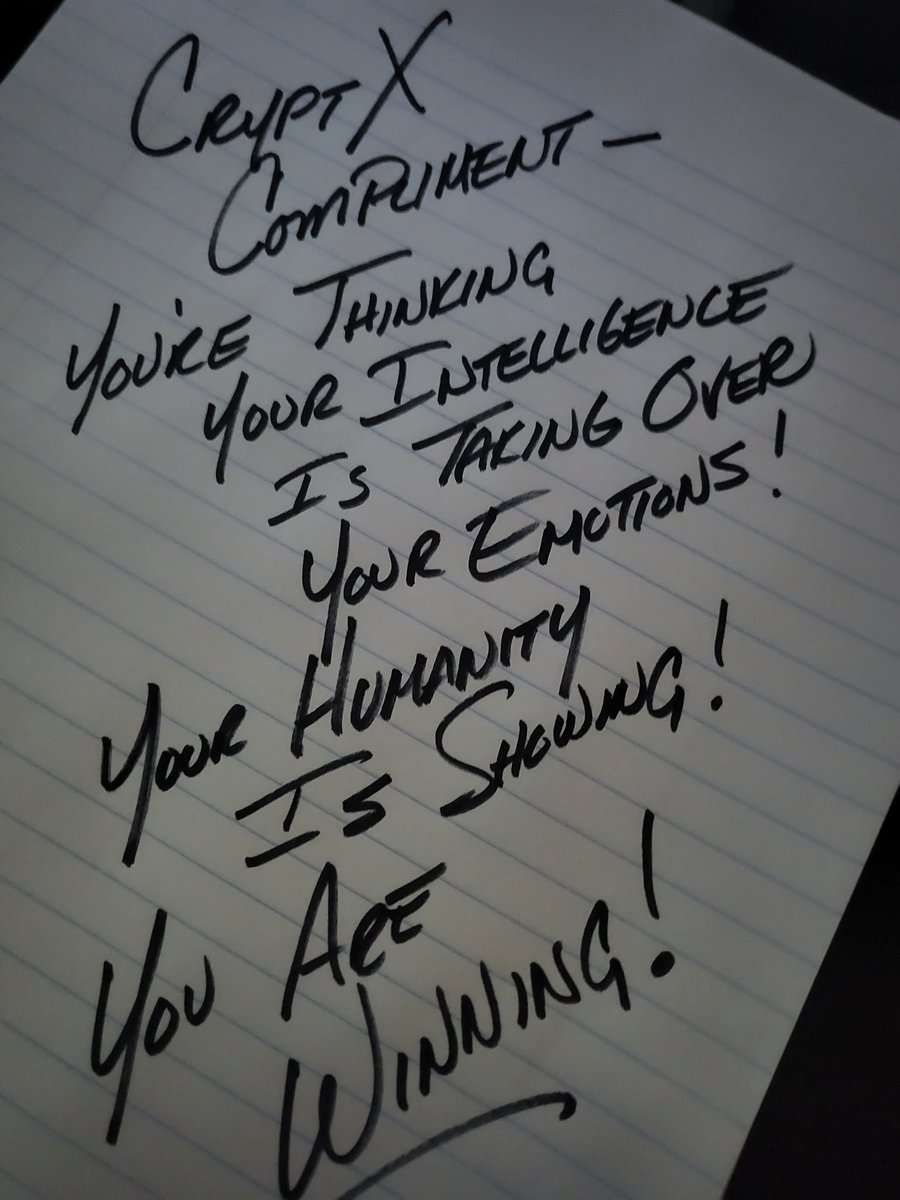 CRYPTX
COMPLIMENT —
YOU'RE THINKING
YOUR INTELLIGENCE
IS TAKING OVER
YOUR EMOTIONS!
YOUR HUMANITY
IS SHOWING!
YOU ARE
WINNING!